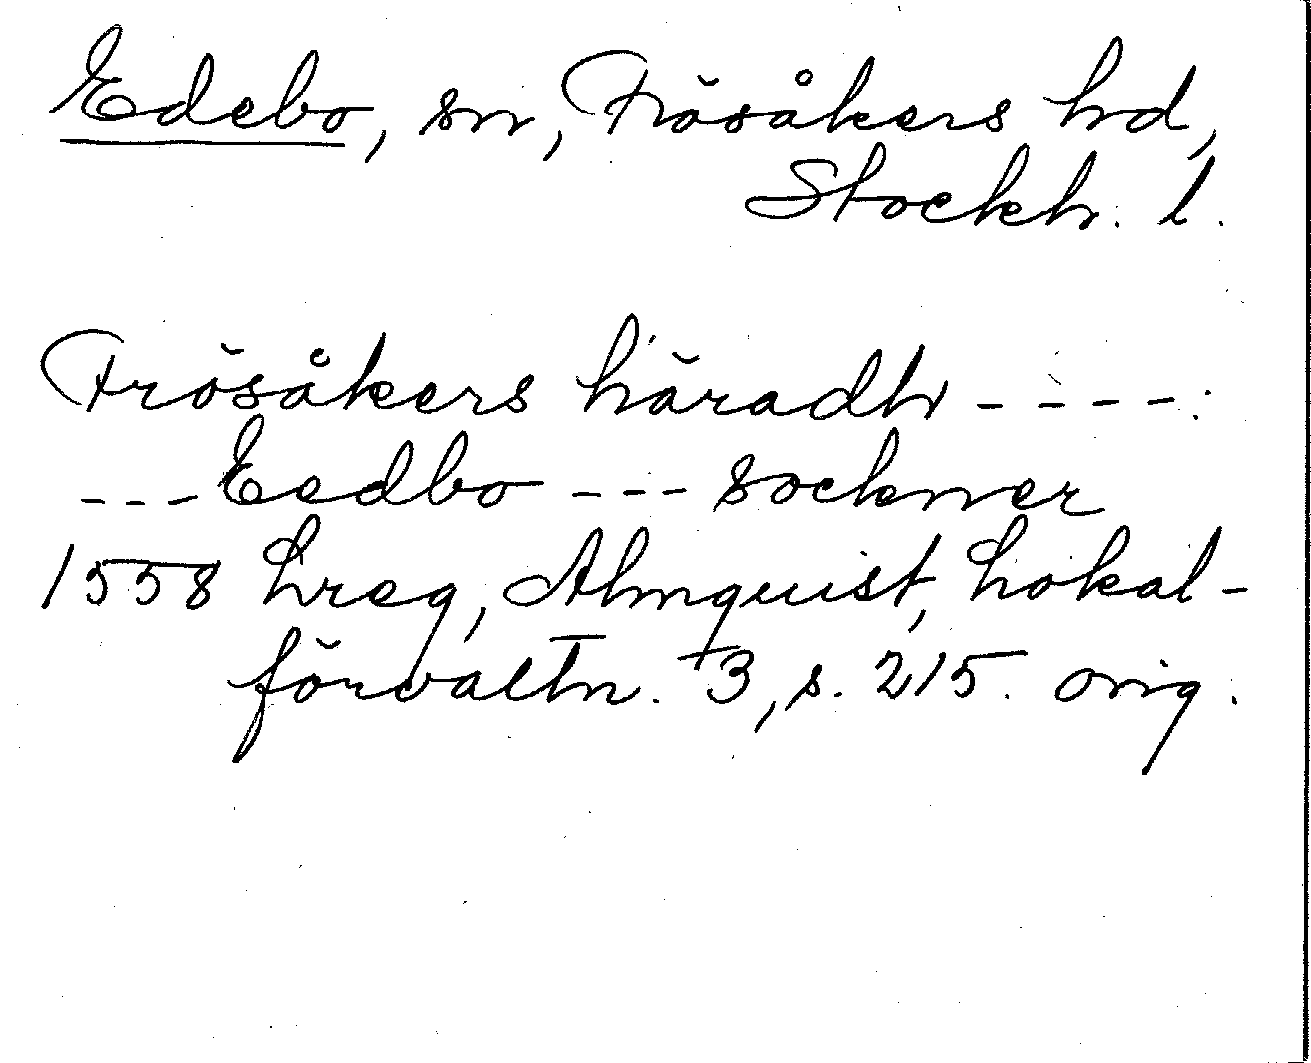 Edebo, sn, Frösåkers hd,
Stockh. l.
Frösåkers häradh ----:
--- Eedbo --- sockner
1558 Lreg, Almquist, Lokal-
förvaltn. 3, s. 215. orig.